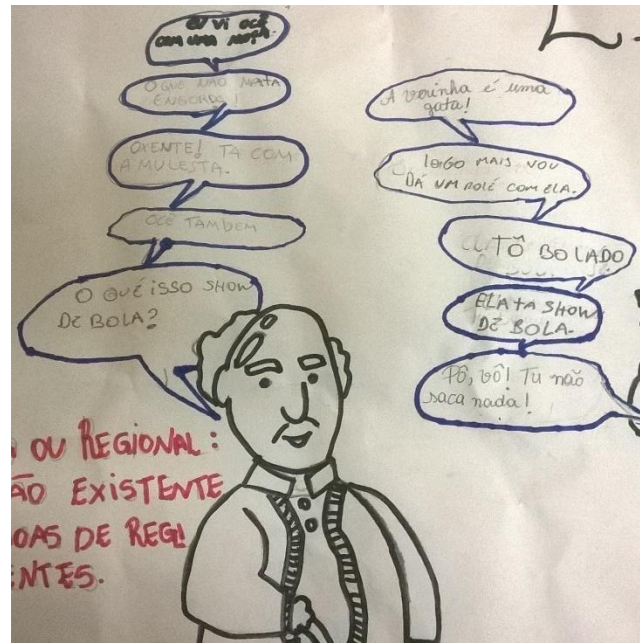 EU VI OCÊ
COM UMA MOÇA.
O QUE NÃO MATA
ENGORDA!
OXENTE! TA COM
A MULESTA.
OCÊ TAMBEM
O QUÊ ISSO SHOW
DE BOLA?
A verinha é uma
gata!
logo mais vou
DÁ UM rolé com ELA.
TÔ BOLADO
ELA TA SHOW
DE BOLA.
Pô, vô! Tu não
saca nada!
OU REGIONAL:
ÃO EXISTENTE
OAS DE REGI
ENTES.